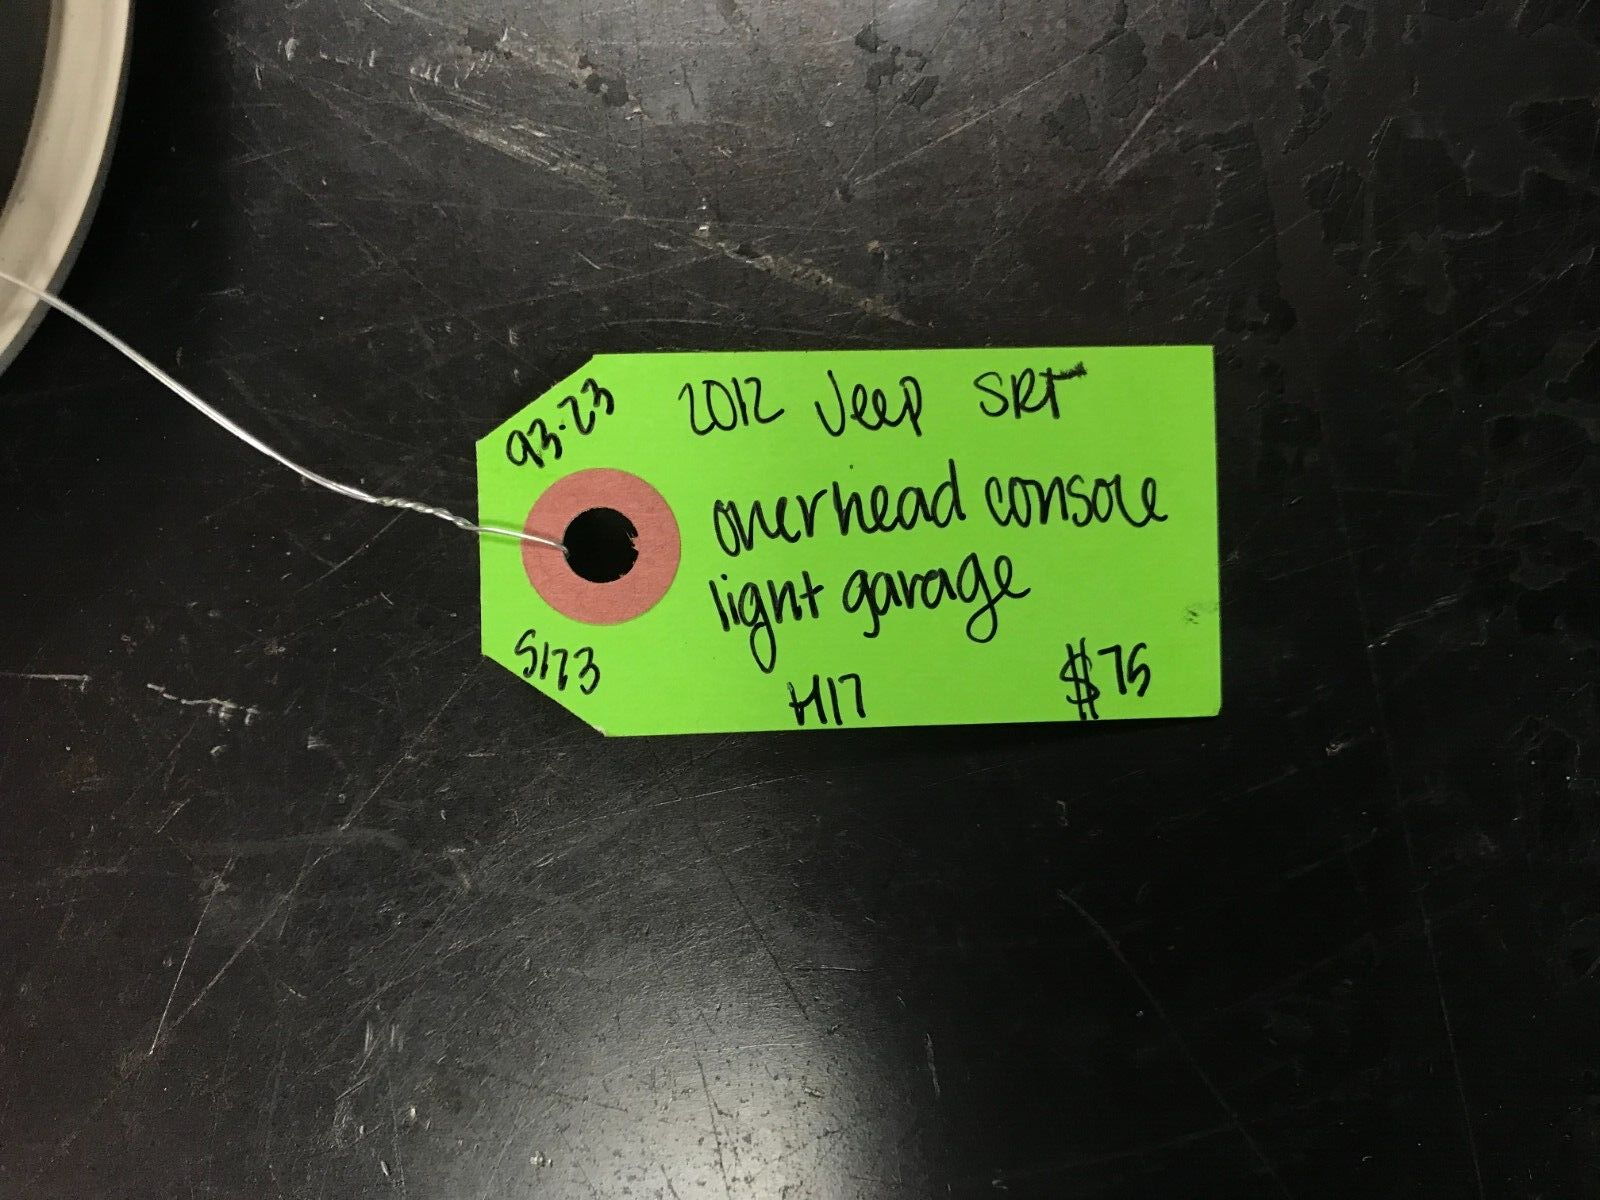 93-23
2012 Jeep SRT
overhead console
light garage
S173
H17
$75